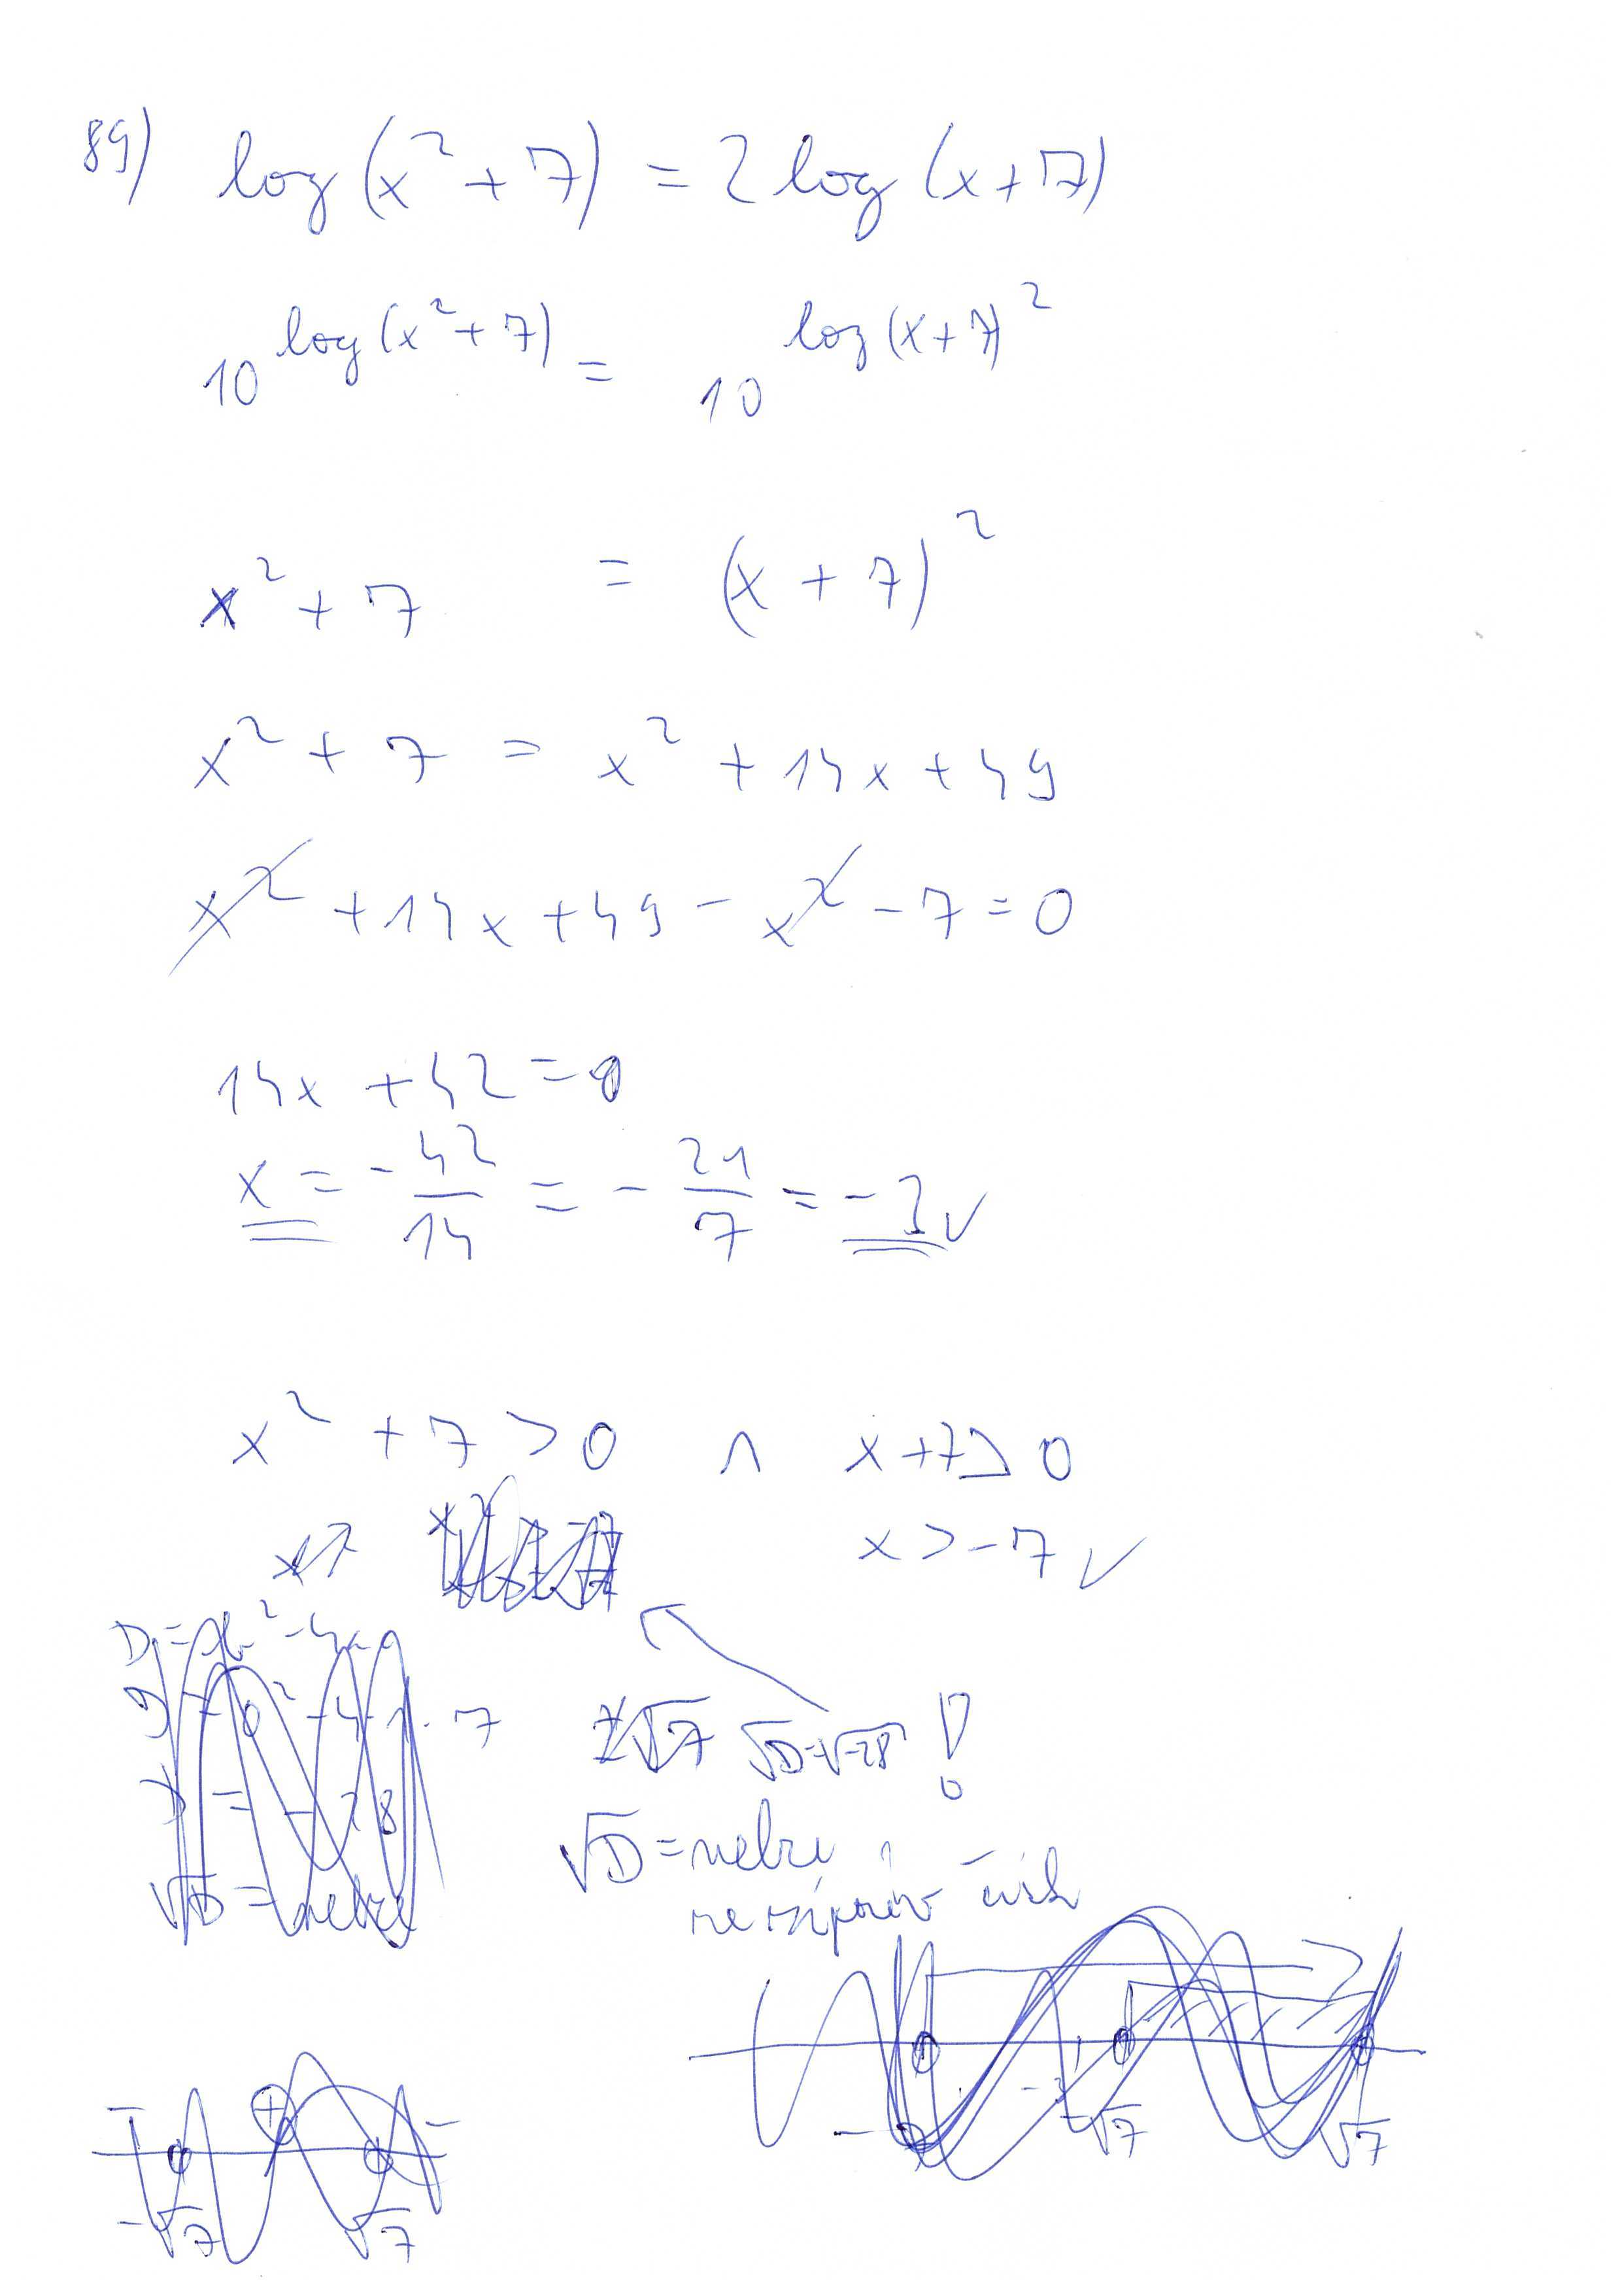 89) log(x²+7) = 2 log(x+7)
10^log(x²+7) = 10^log(x+7)²
x²+7 = (x+7)²
x²+7 = x²+14x+49
x²+14x+49-x²-7=0
14x+42=0
x = -42/14 = -21/7 = -3 ✓
x²+7>0 ∧ x+7>0
x>-7 ✓
D=b²-4ac
D=0²-4·1·7
√7 √D=√-28 !
D=-28
√D=nelze
√D=nelze
-√7 √7
-7 -3 -√7 √7